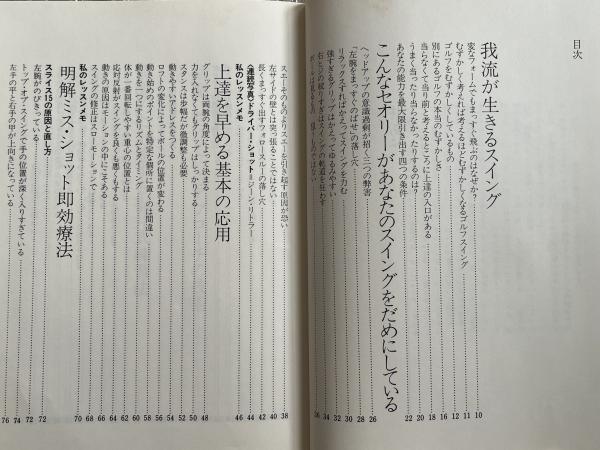 目次
我流が生きるスイング
変なフォームでもまっすぐ飛ぶのはなぜか? 10
むずかしく考えれば考えるほどむずかしくなるゴルフスイング 11
ゴルフをむずかしくしているもの 12
別にあるゴルフの本当のむずかしさ 16
当らなくて当り前と考えるところに上達の入口がある 18
うまく当ったり当らなかったりするのは? 20
あなたの能力を最大限引き出す四つの条件 22
こんなセオリーがあなたのスイングをだめにしている
ヘッドアップの意識過剰が招く三つの弊害 26
「左腕をまっすぐのばせ」の落し穴 28
リラックスすればかえってスイングを力む 30
強すぎるグリップはかえってゆるみやすい 32
34
36
スエーそのものよりスエーを引き起す原因が恐い 38
左サイドの壁とは突っ張ることではない 40
長くまっすぐ出すフォロースルーの落し穴 42
〈連続写真〉ドライバー・ショット=ジーン・リトラー 44
私のレッスンメモ 46
上達を早める基本の応用
グリップは両腕の角度によって決まる 48
力を入れなくてもグリップはしっかりする 50
スタンスは歩幅だが微調整も必要 52
動きやすいアドレスをつくる 54
ロフトの変化によってボールの位置が変わる 56
動き始めのポイントを特定な個所に置くのは間違い 58
動きを一つにするリズムとタイミング 60
体が一番回転しやすい重心の位置とは 62
応対反射がスイングを良くも悪くもする 64
動きの原因はモーションの中にこそある 66
スイングの修正はスローモーションで 68
私のレッスンメモ 70
明解ミス・ショット即効療法
スライス15の原因と直し方 72
左腕がのびきっている 72
トップ・オブ・スイングで手の位置が深く入りすぎている 74
左手の平と右手の甲が上向きになっている 76